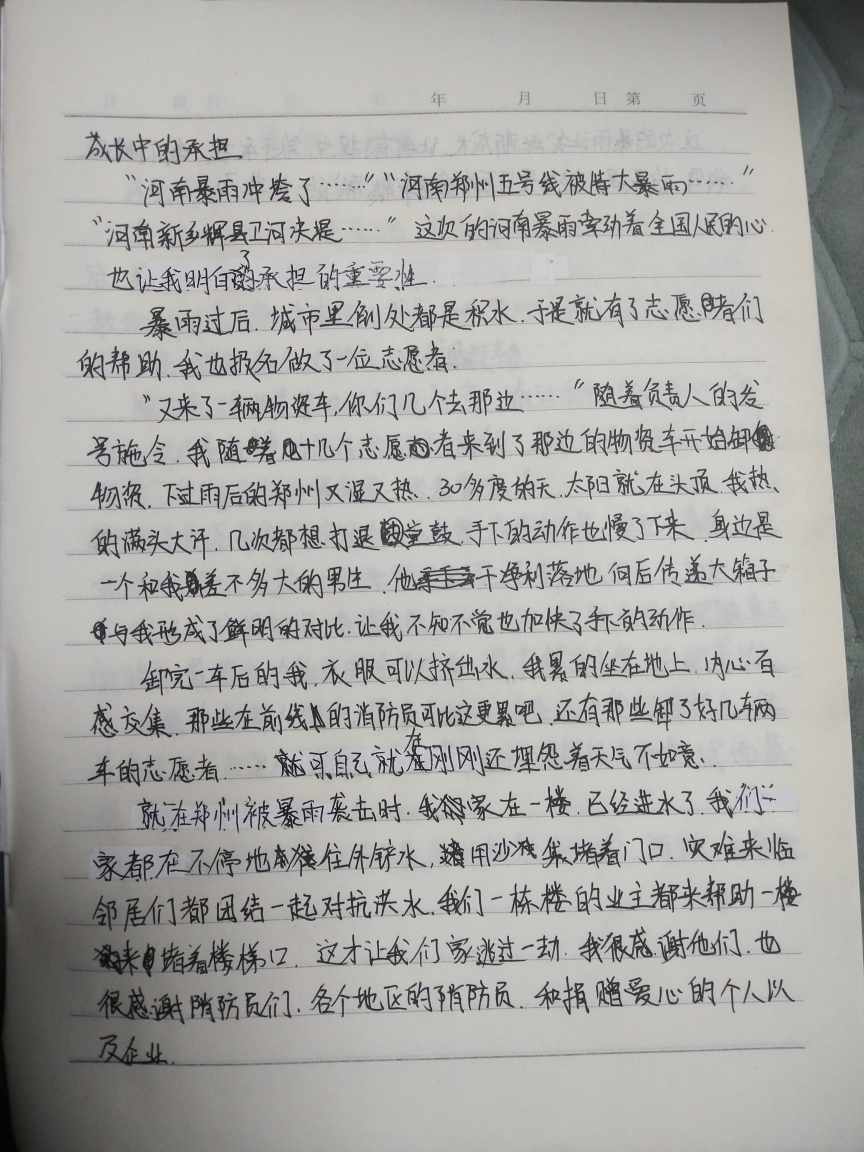 年 月 日 第 页
成长中的承担
“河南暴雨冲垮了……”“河南郑州五号线被特大暴雨……”
“河南新乡辉县卫河决堤……” 这次的河南暴雨牵动着全国人民的心.
也让我明白了承担的重要性.
暴雨过后.城市里倒处都是积水.于是就有了志愿者们
的帮助.我也报名做了一位志愿者.
“又来了一辆物资车,你们几个去那边……” 随着负责人的发
号施令.我随着几十几个志愿者来到了那边的物资车开始卸
物资.下过雨后的郑州又湿又热.30多度的天.太阳就在头顶.我热
的满头大汗.几次都想打退堂鼓.手下的动作也慢了下来.身边是
一个和我差不多大的男生.他干净利落地向后传递大箱子
与我形成了鲜明的对比.让我不知不觉也加快了手下的动作.
卸完一车后的我.衣服可以挤出水.我累的坐在地上.内心百
感交集.那些在前线的消防员可比这更累吧.还有那些卸了好几车两
车的志愿者……就可自己就在刚刚还埋怨着天气不如意.
就在郑州被暴雨袭击时.我家在一楼.已经进水了.我们
家都在不停地往外铲水,用沙袋堵着门口.灾难来临
邻居们都团结一起对抗洪水.我们一栋楼的业主都来帮助一楼
堵着楼梯口.这才让我们家逃过一劫.我很感谢他们.也
很感谢消防员们.各个地区的消防员.和捐赠爱心的个人以
及企业.